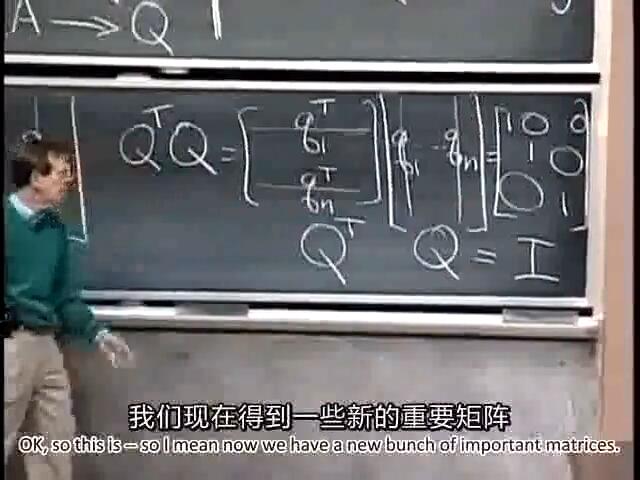 A → Q
QᵀQ = [ q₁ᵀ qₙᵀ ] [ q₁ ... qₙ ] = [ 1 0 0 1 0 0 1 ]
Qᵀ Q = I
我们现在得到一些新的重要矩阵
OK, so this is – so I mean now we have a new bunch of important matrices.